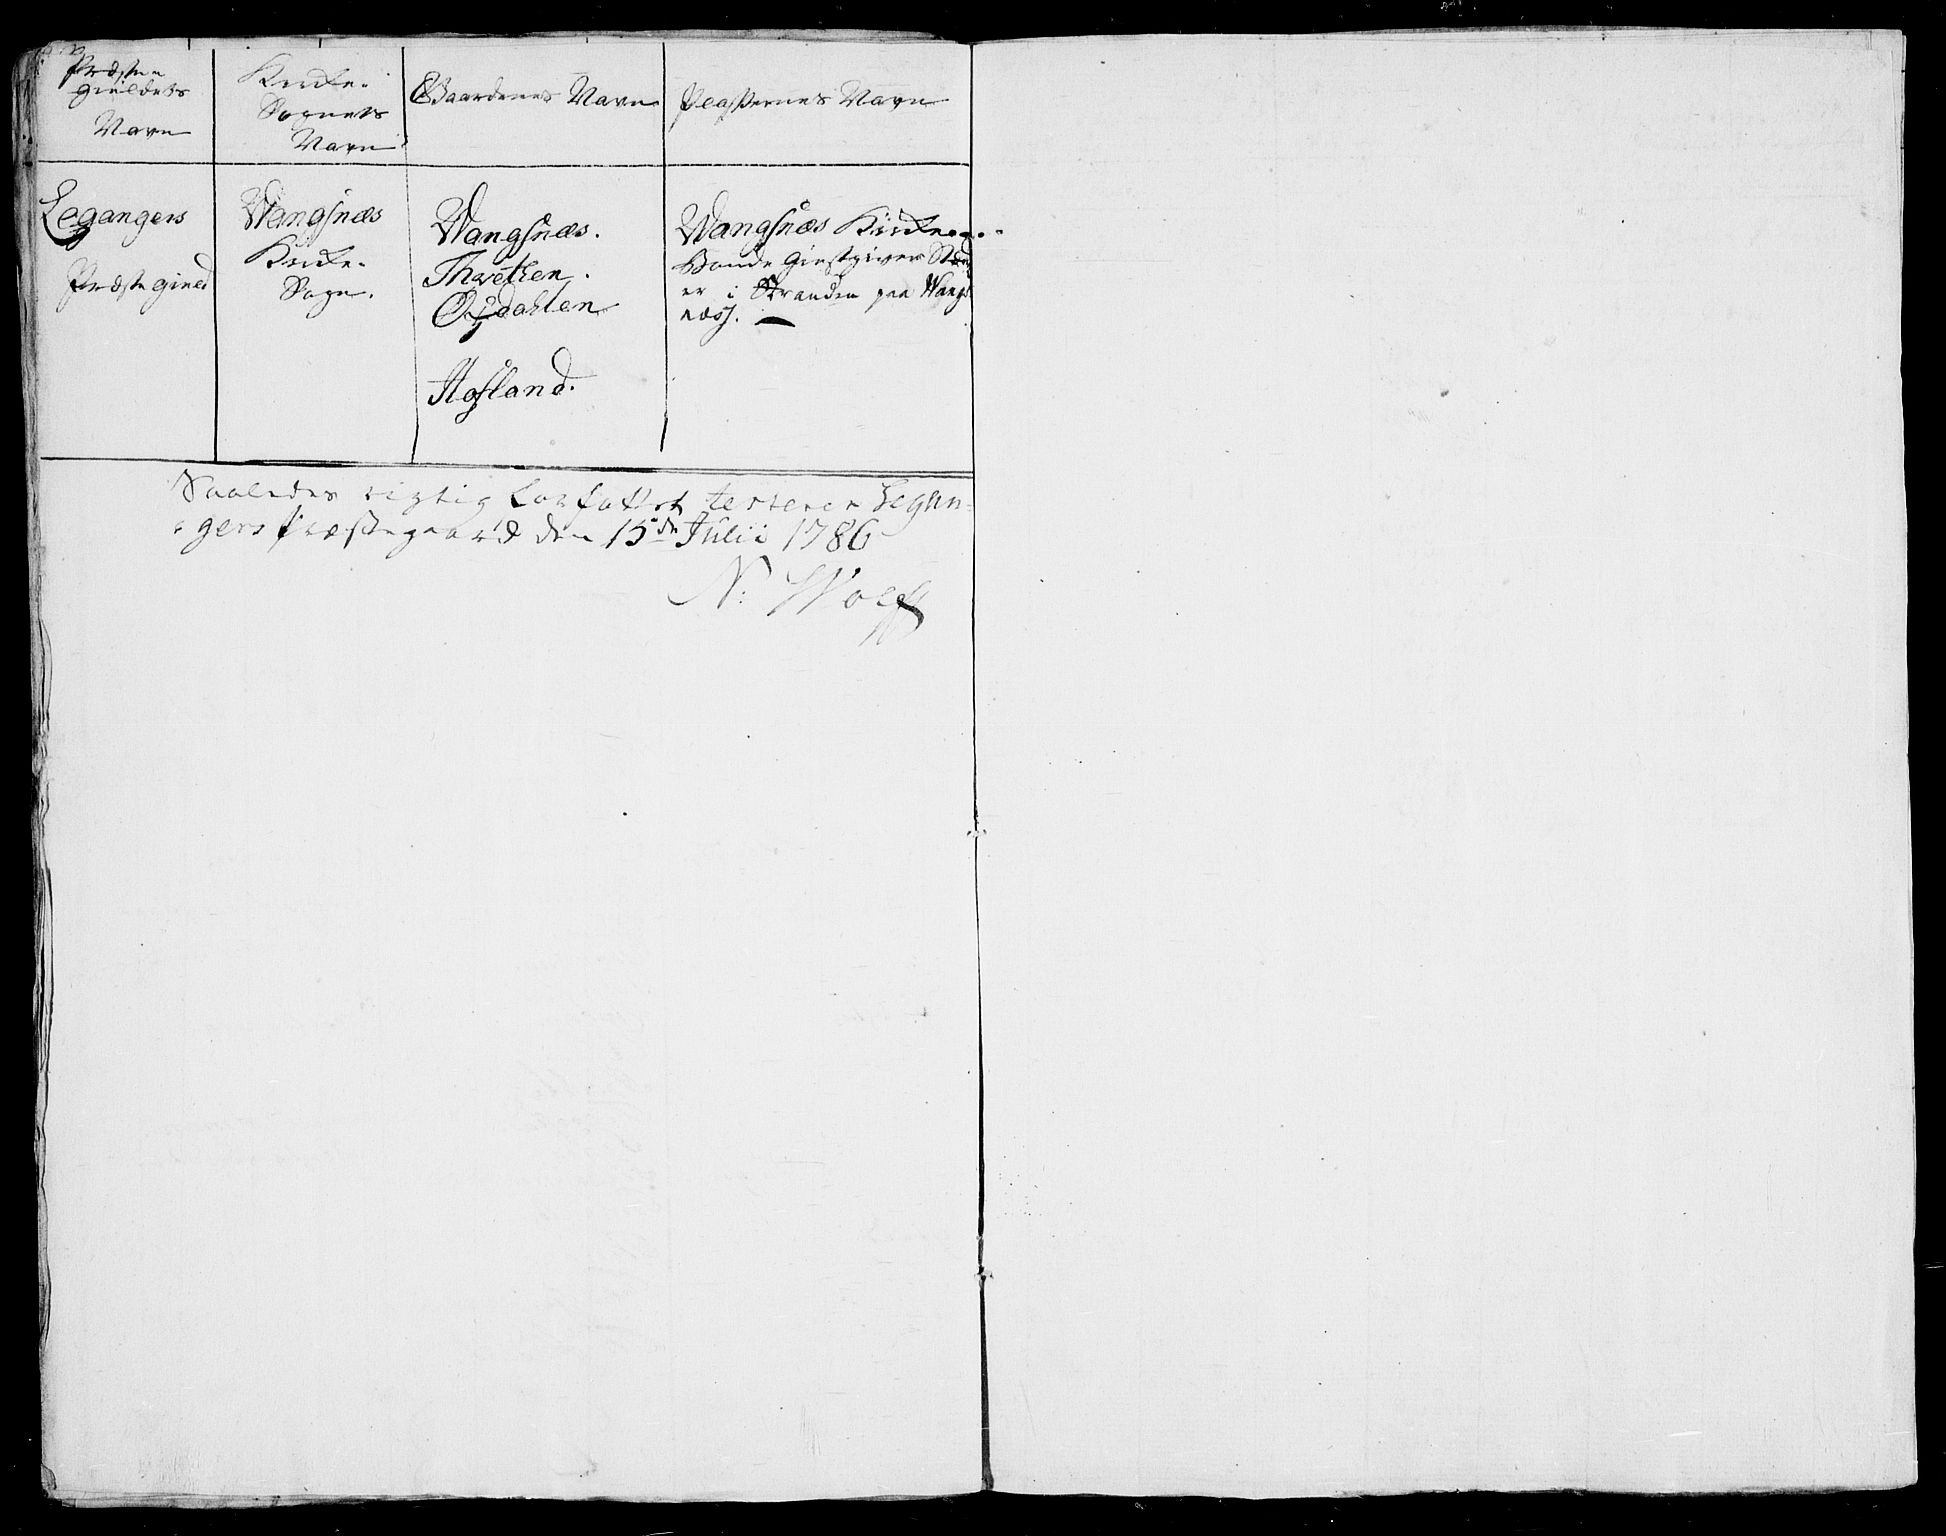 Præste
gieldets
Navn
Kirke-
Sognets
Navn
Gaardenes Navn
Pladsernes Navn
Legangers
Præstegield
Wangsnæs
Kirke-
Sogn.
Wangsnæs.
Thvethen.
Opdahlen
Hofland.
Wangsnæs Kirke og
Bonde Giestgiver Stæd
er i Stranden paa Wangs
næss.
Saaledes rigtig forfattet testerer Legan-
gers Præstegaard den 15de Julii 1786
N: Wolff